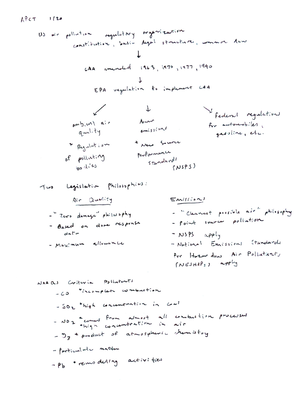 APCT 1/30
US air pollution regulatory organization
constitution, basic legal structure, common law
CAA amended 1963, 1970, 1977, 1990
EPA regulation to implement CAA
ambient air quality
* Regulation of polluting
Area emissions
* New Source Performance Standards (NSPS)
Federal regulations for automobiles, gasoline, etc.
Two Legislation Philosophies:
Air Quality
- "Zero damage" philosophy
- Based on dose response data
- Maximum allowance
Emissions
- "Cleanest possible air" philosophy
- Point source pollution
- NSPS apply
- National Emissions Standards
For Hazardous Air Pollutants
(NESHAPs) apply
NAAQS Criteria Pollutants
- CO *incomplete combustion
- SO2 *high concentration in coal
- NO2 *comes from almost all combustion processes
*high concentration in air
- O3 * product of atmospheric chemistry
- Particulate matter
- Pb *remodeling activities